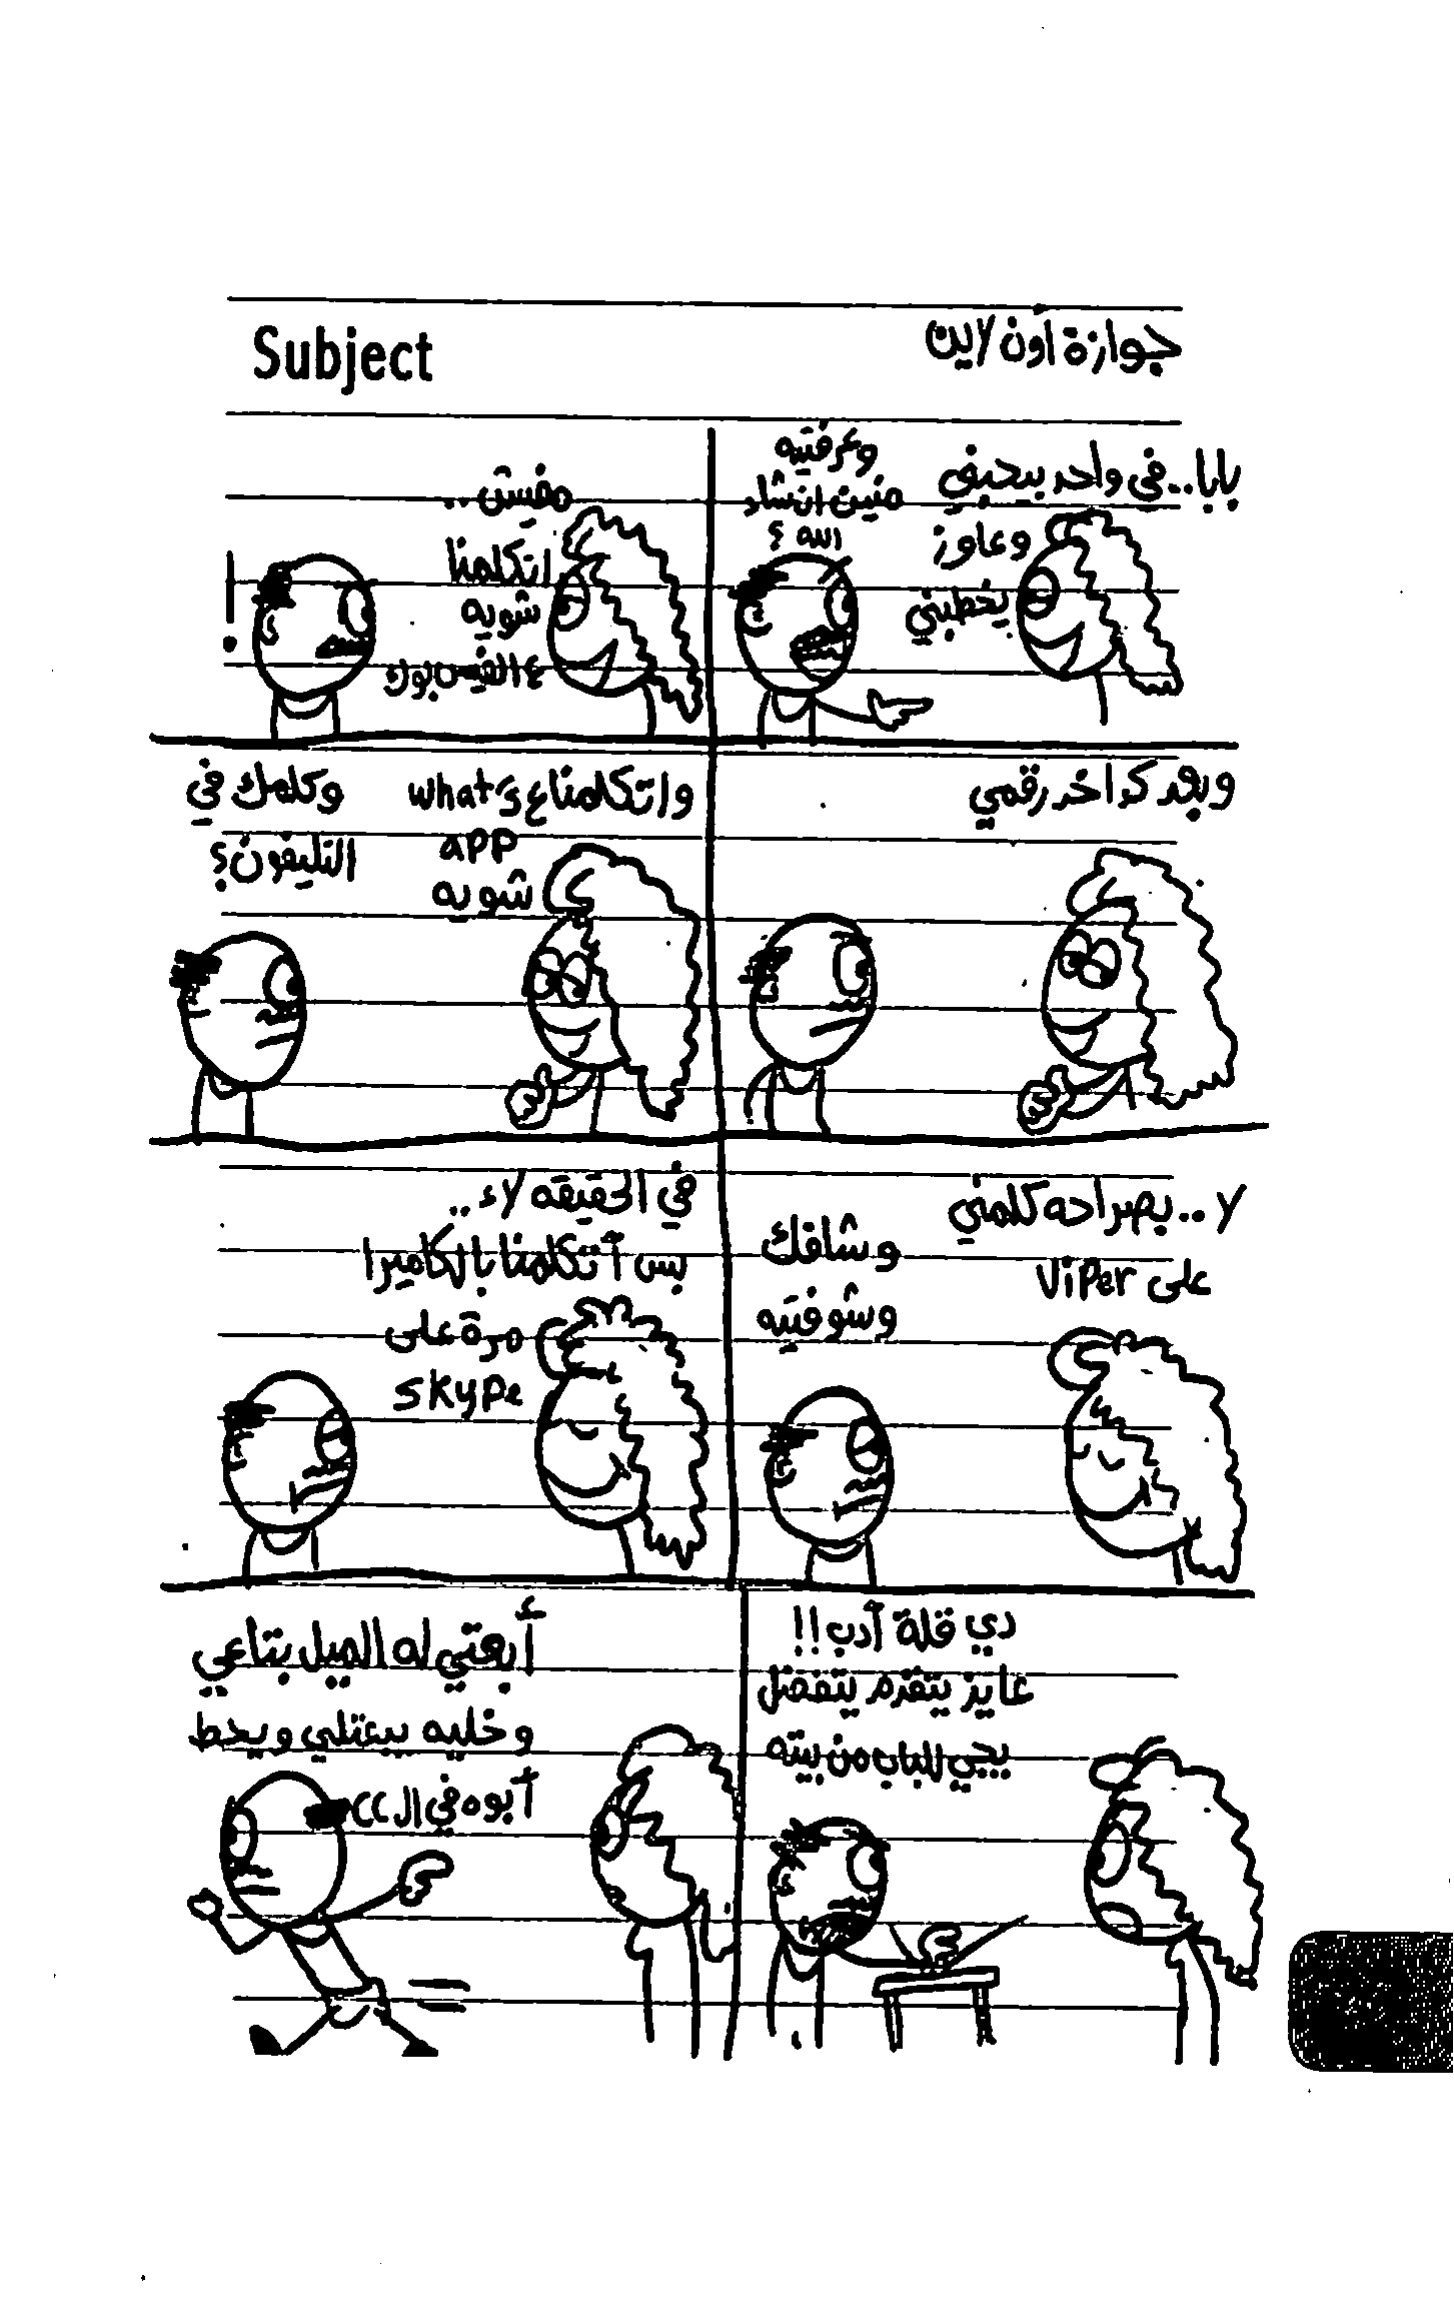 Subject
جوازة اون لاين
بابا.. في واحد بيحبني
وعاوز
يخطبني
وعرفتيه
منين انشاء
الله ؟
مفيش ..
اتكلمنا
شويه
ع الفيس بوك
!
وبعد كدا خد رقمي
واتكلمنا ع what's
app
شويه
وكلمك في
التليفون؟
لا .. بصراحه كلمني
على Viper
وشافك
وشوفتيه
في الحقيقه لاء ..
بس أتكلمنا بالكاميرا
مرة على
skype
دي قلة أدب !!
عايز يتقدم يتفضل
يجي للباب من بيته
أبعتي له الميل بتاعي
وخليه يبعتلي ويحط
أبوه في ال CC